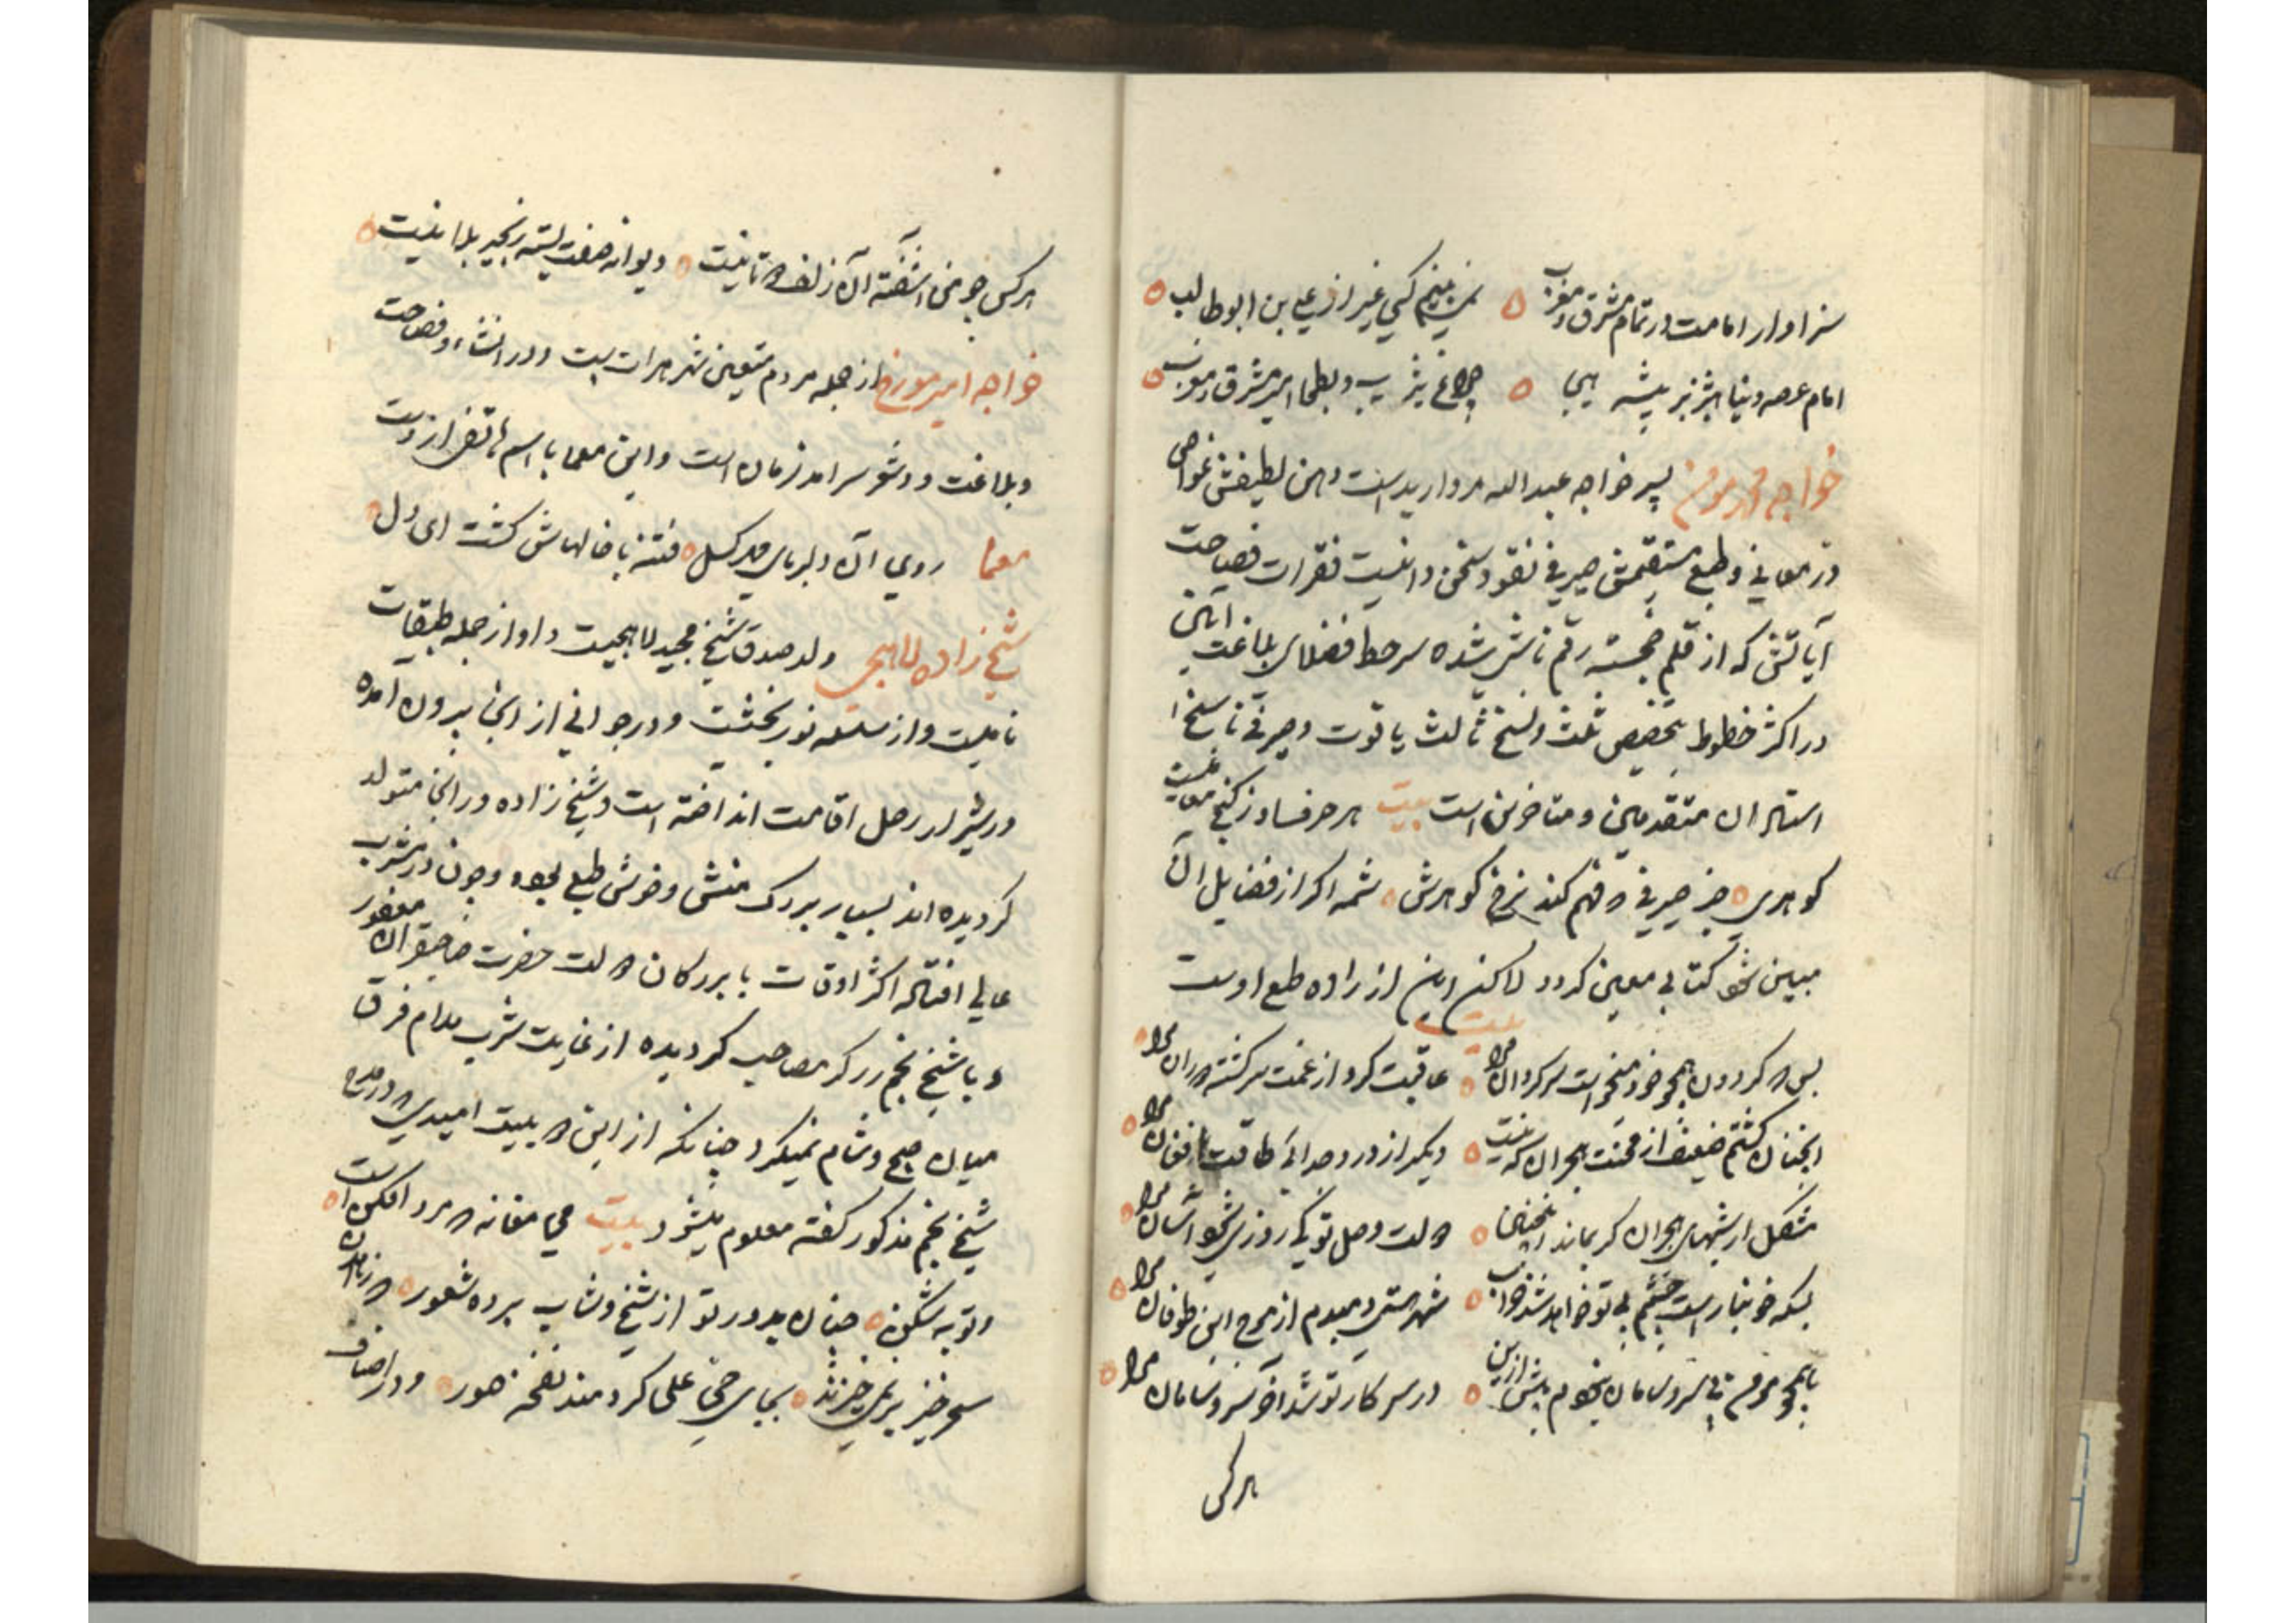 سزاوار امامت در تمام مشرق و مغرب ۵ نمی بینم کسی غیر از علی بن ابوطالب ۵
امام عرصه دنیا هژبر بیشه هیجا ۵ چراغ یثرب و بطحا امیر مشرق و مغرب ۵
خواجه محمد مومن پسر خواجه عبدالله مروارید است ذهن لطیفش غواص
در معانی و طبع مستقیمش صیرفی نقود سخن دانیست فقرات فصاحت
آیاتش که از قلم خجسته رقم ناشی شده سرخط فضلای بلاغت آیین
در اکثر خطوط بتخصیص ثلث و نسخ ثالث یاقوت و صیرفی ناسخ
استادان متقدمین و متاخرین است بیت هر حرف او ز کنج معانیست
کوهری ۵ جز صیرفی که فهم کند نرخ کوهرش ۵ شمه اکر از فضایل آن
مبین شود کتابی معین کردد لاکن این از زاده طبع اوست
بیت
بس که کردون همچو خود میخواست سرکردان مرا ۵ عاقبت کرد از غمت سرکشته دوران مرا ۵
انچنان کشتم ضعیف از محنت هجران که نیست ۵ دیکر از درد جدائی طاقت افغان مرا ۵
مشکل ار شبهای هجران کر بماند اینچنین ۵ دولت وصل تو یک روزی شود آسان مرا ۵
بسکه خونبار است چشمم بی تو خواهد شد خراب ۵ شهر هستی دمبدم از موج این طوفان مرا ۵
همچو مومن بی سر و سامان نبودم پیش ازین ۵ در سر کار تو شد آخر سر و سامان مرا ۵
هرکس
هرکس چو من آشفته آن زلف دوتا نیست ۵ دیوانه صفت بسته زنجیر بلا نیست ۵
خواجه امیر مورخ از جمله مردم متعین شهر هرات ست و در انشاء و فصاحت
و بلاغت و در شعر سرامد زمان است و این معما باسم هاتفی از وست
معما روی آن دلربای مهر کسل ۵ فتنه با خالهاش کشت ای دل ۵
شیخ زاده لاهیجی ولد صدق شیخ محمد لاهیجیست و او از جمله طبقات
نامیست و از سلسله نوربخشیست و در جوانی از انجا بیرون آمده
در شیراز رحل اقامت انداخته است و شیخ زاده در انجا متولد
کردیده اند بسیار بزرک منش و خوش طبع بوده و چون در مشرب
عالی افتاده اکثر اوقات با بزرکان دولت حضرت صاحبقران مغفور
و با شیخ نجم زرکر مصاحب کردیده از غایت شرب مدام فرق
میان صبح و شام نمیکرد چنانکه از این دو بیت امیدی که در مدح
شیخ نجم مذکور کفته معلوم میشود بیت می مغانه که مرد افکن است ۵
و توبه شکن ۵ چنان بدور تو از شیخ و شاب برده شعور ۵ که زاهدان
سحرخیز بر نمی خیزند ۵ بجای حی علی کر دمند نفخه صور ۵ و در اصناف